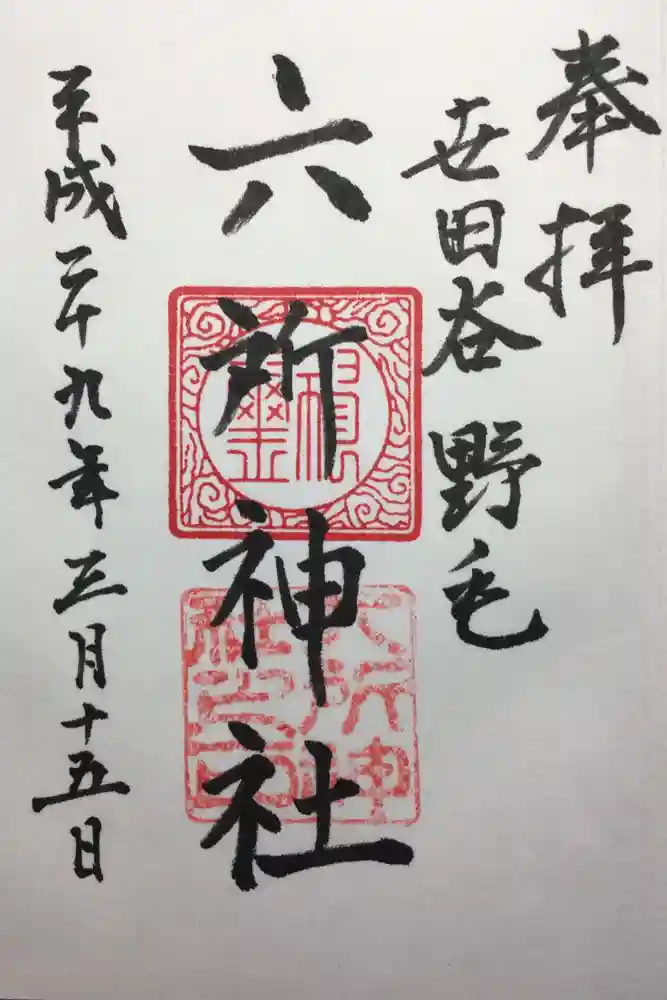 奉拝
世田谷野毛
六所神社
平成二十九年三月十五日